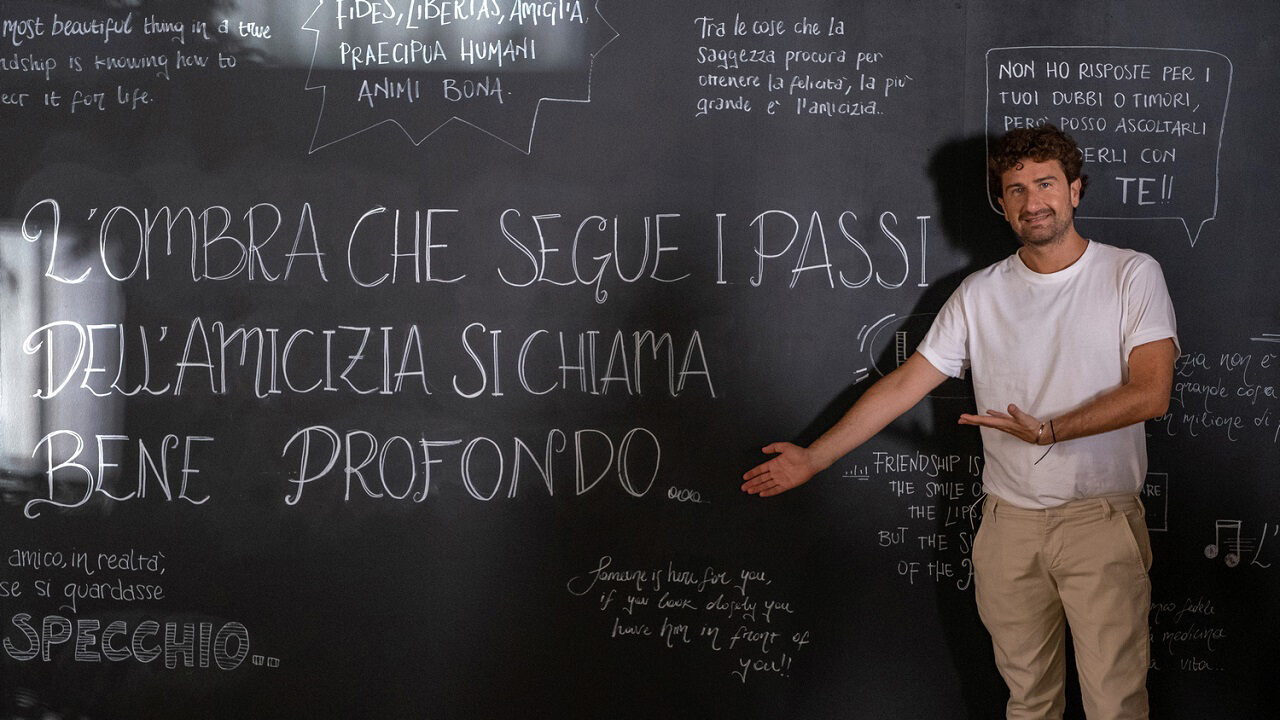 most beautiful thing in a true
ndship is knowing how to
ect it for life.
FIDES, LIBERTAS, AMICITIA,
PRAECIPUA HUMANI
ANIMI BONA.
Tra le cose che la
saggezza procura per
ottenere la felicità, la più
grande è l'amicizia..
NON HO RISPOSTE PER I
TUOI DUBBI O TIMORI,
PERÒ POSSO ASCOLTARLI
DERLI CON
TE!!
L'OMBRA CHE SEGUE I PASSI
DELL'AMICIZIA SI CHIAMA
BENE PROFONDO...
zia non è
grande cosa
un milione di
FRIENDSHIP IS
THE SMILE O
THE LIPS,
BUT THE S
OF THE
ARE
L'
amico, in realtà,
se si guardasse
SPECCHIO...
Someone is here for you,
if you look closely you
have him in front of
you!!
fedele
a medicina
a vita..